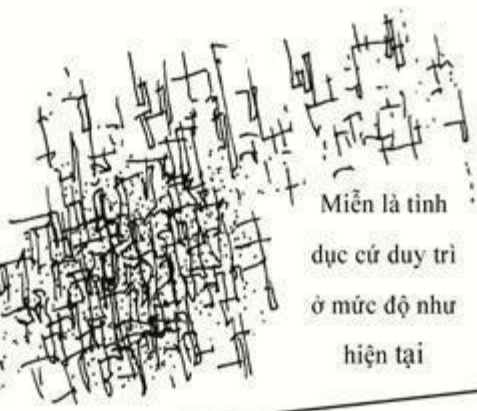 Miễn là tình
dục cứ duy trì
ở mức độ như
hiện tại